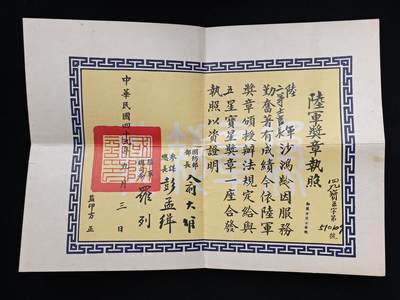 陸軍獎章執照
字第
號
陸軍
二等士官長沙鴻齡因服務
勤奮著有成績今依陸軍
獎章頒授辦法規定給與
五星寶星獎章一座合發
執照以資證明
國防部
部長
俞大維
參謀
總長
彭孟緝
陸軍
總司令
羅列
中華民國四十
月三日
監印方正